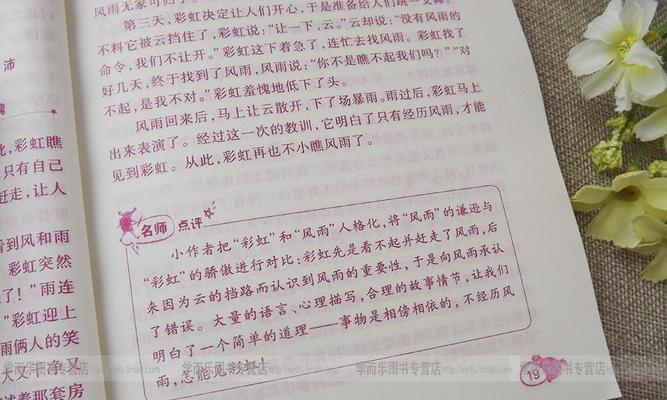 沛
魂
此,彩虹瞧
只有自己
赶走,让人
看到风和雨
彩虹突然
了!”雨连
”彩虹迎上
雨俩人的笑
大又干净又
着那套房
风雨无家可归了。
第三天,彩虹决定让人们开心,于是准备给人们跳一支舞。
不料它被云挡住了,彩虹说:“让一下,云。”云却说:“没有风雨的
命令,我们不让开。”彩虹这下着急了,连忙去找风雨。彩虹找了
好几天,终于找到了风雨,风雨说:“你不是瞧不起我们吗?”“对
不起,是我不对。”彩虹羞愧地低下了头。
风雨回来后,马上让云散开,下了场暴雨。雨过后,彩虹马上
出来表演了。经过这一次的教训,它明白了只有经历风雨,才能
见到彩虹。从此,彩虹再也不小瞧风雨了。
名师 点评
小作者把“彩虹”和“风雨”人格化,将“风雨”的谦逊与
“彩虹”的骄傲进行对比:彩虹先是看不起并赶走了风雨,后
来因为云的挡路而认识到风雨的重要性,于是向风雨承认
了错误。大量的语言、心理描写,合理的故事情节,让我们
明白了一个简单的道理——事物是相傍相依的,不经历风
雨,怎能见彩虹!
19
学而乐图书专营店
学而乐图书专营店
学而乐图书专营店